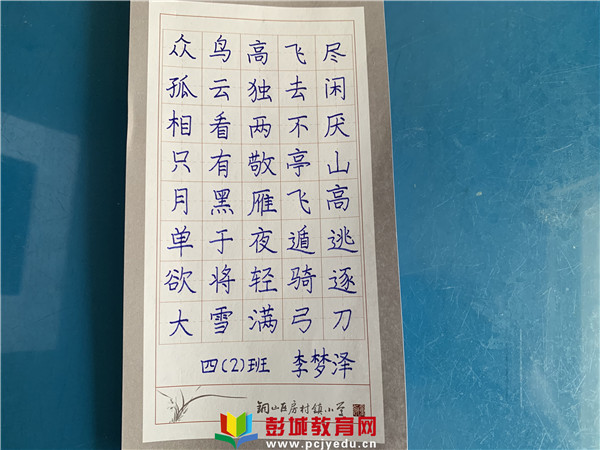 众鸟高飞尽
孤云独去闲
相看两不厌
只有敬亭山
月黑雁飞高
单于夜遁逃
欲将轻骑逐
大雪满弓刀
四(2)班 李梦泽
铜山区房村镇小学
彭城教育网
www.pcjyedu.cn